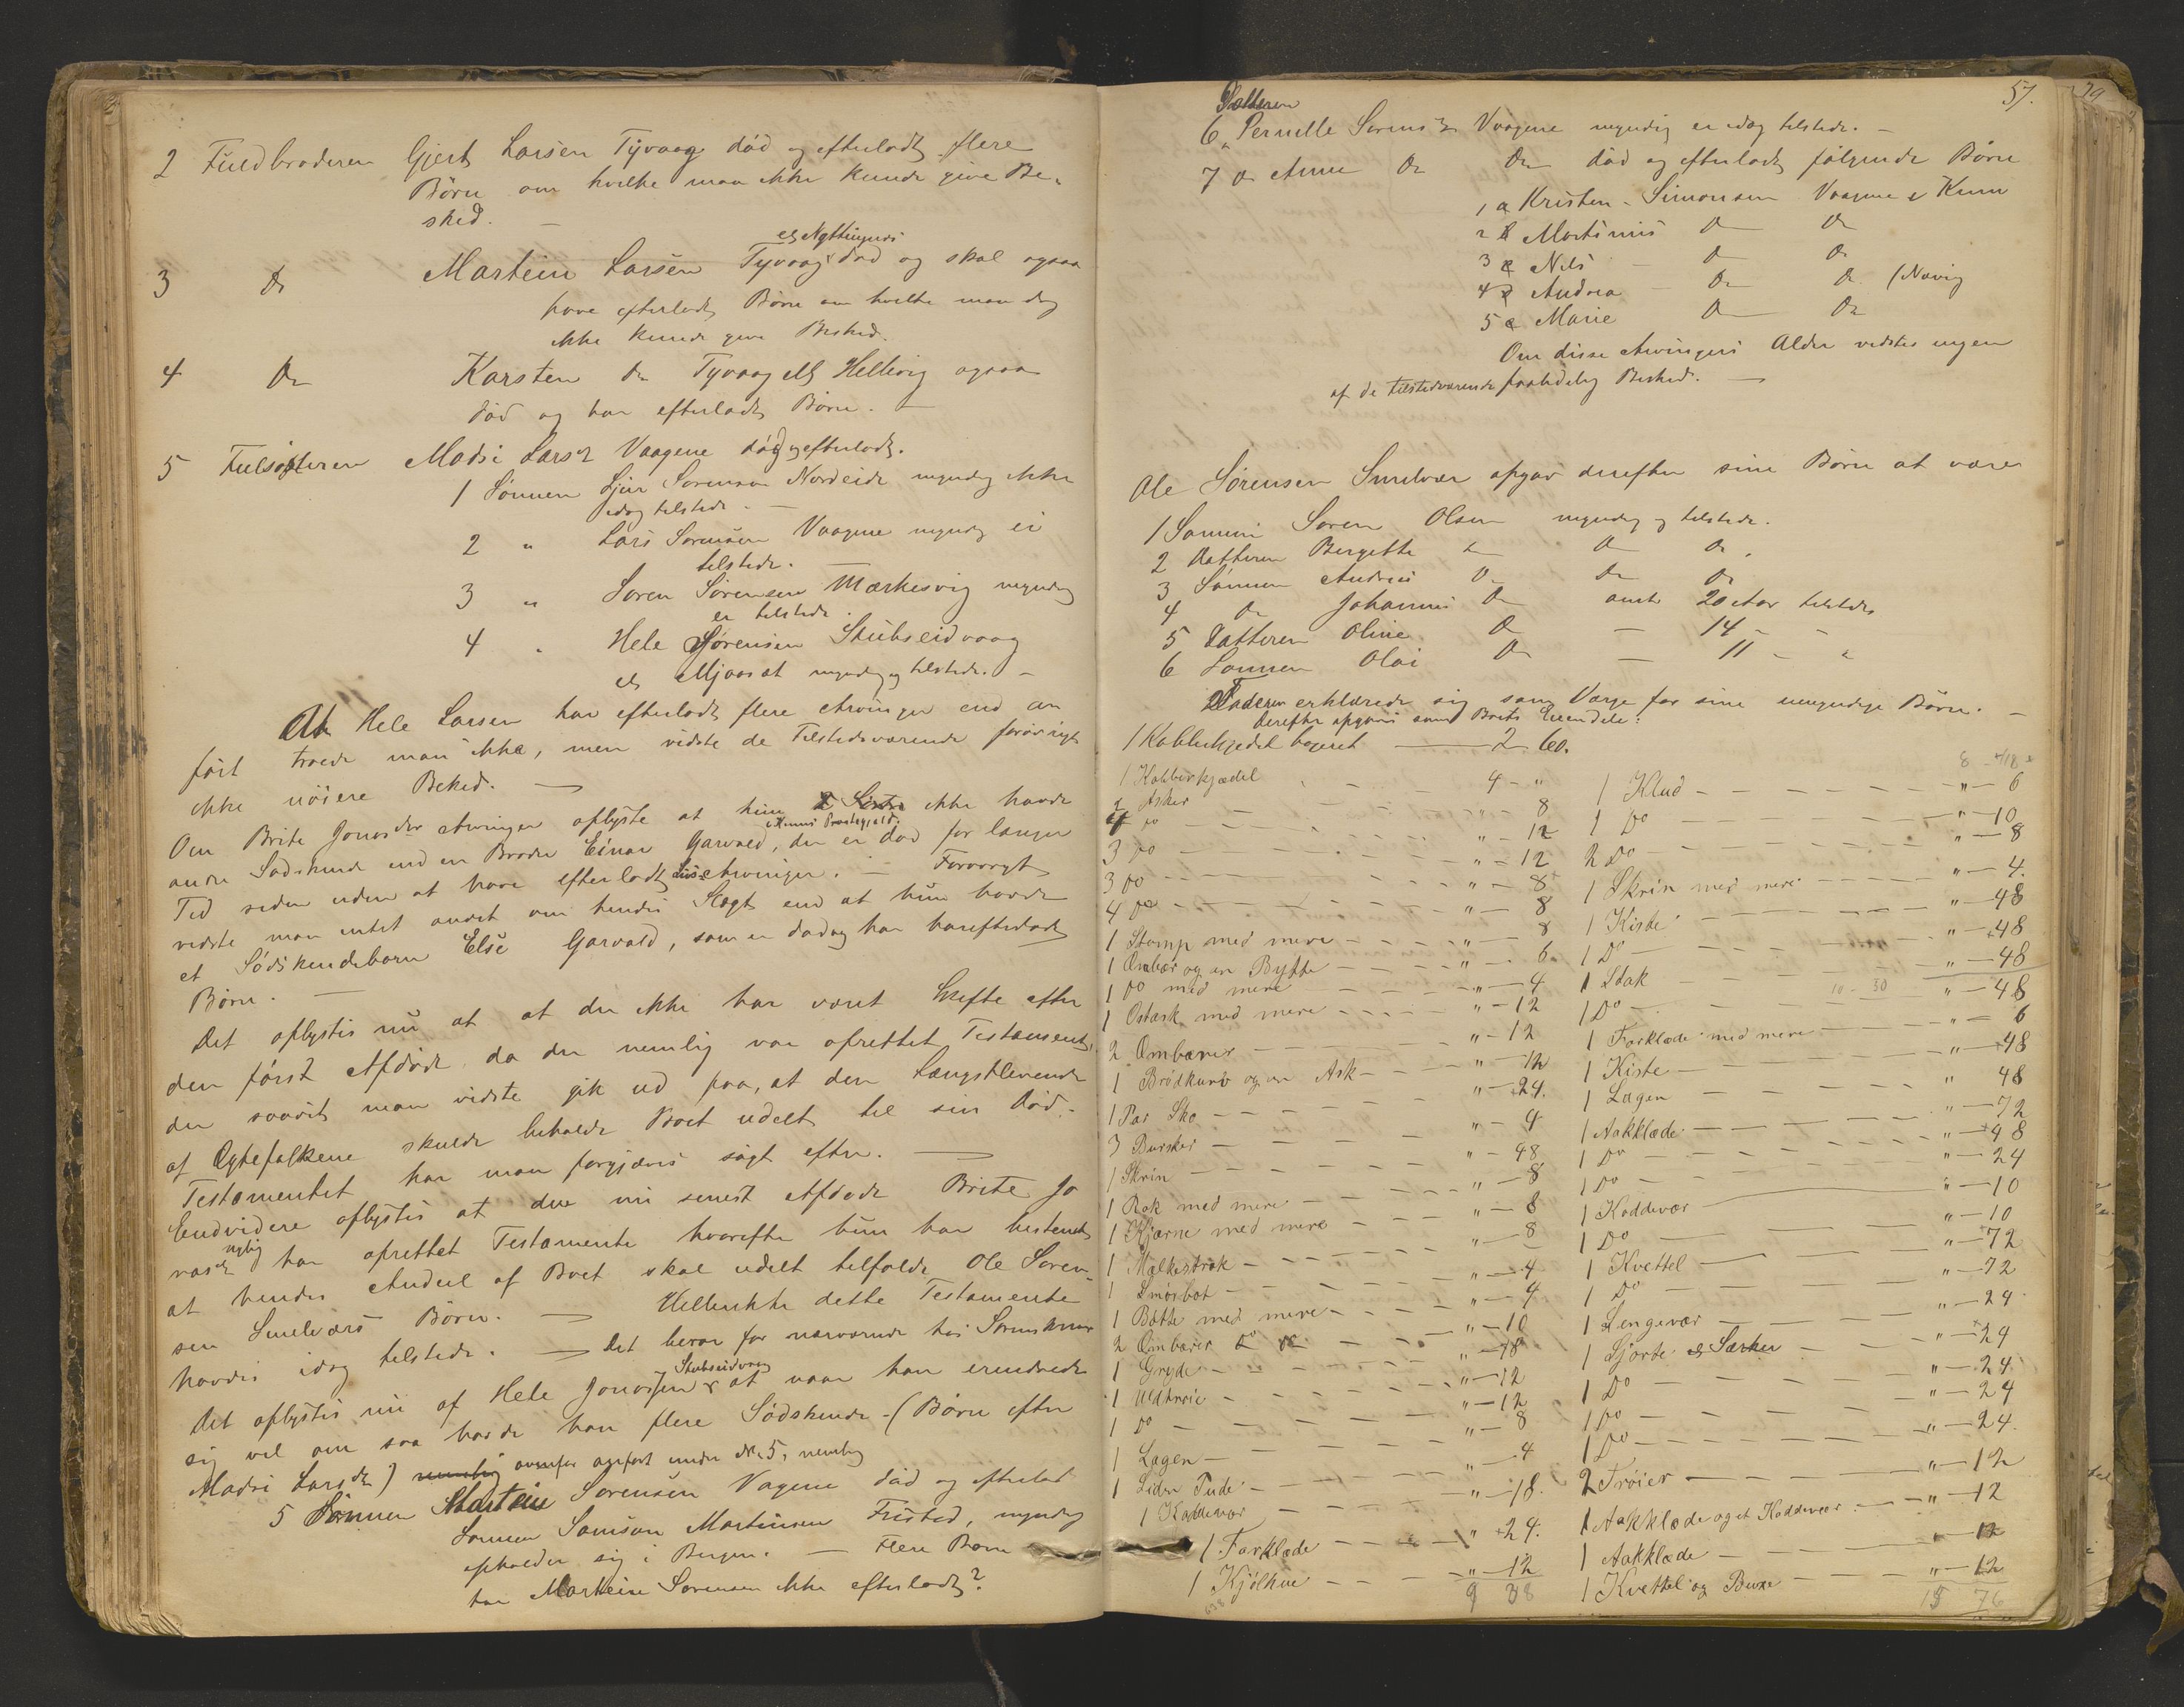 2 Fuldbroderen Gjert Larsen Tyvaag død og efterladt flere
Børn om hvilke man ikke kunde give Be-
sked. —
els Nøttingnes
3 Do Martein Larsen Tyvaag død og skal ogsaa
have efterladt Børn om hvilke man dog
ikke kunde give Besked.
4 Do Karsten Do Tyvaag els Hellevig ogsaa
død og har efterladt Børn. —
5 Fulsøsteren Madsi Larsdr Vaagene død og efterladt.
1 Sønnen Sjur Sørensen Nordeide myndig ikke
idag tilstede. —
2 " Lars Sørensen Vaagene myndig ei
tilstede.
3 " Søren Sørensen Mærkesvig myndig
er tilstede.
4 " Hele Sørensen Stubseidvaag
els Mjaaset myndig og tilstede. —
At Hele Larsen har efterladt flere Arvinger end an
ført troede man ikke, men vidste de Tilstedeværende forøvrigt
ikke nöiere Besked. —
Om Brite Jonasdr Arvinger oplyste at hun ikke havde
i Kinns Præstegjæld.
andre Sødskende end en Broder Einar Garvald, der er død for længer
Tid siden uden at have efterladt Livs Arvinger. — Forøvrigt
vidste man intet andet om hendes Slægt end at hun havde
et Södskendebarn Else Garvald, som er død og har efterladt
Børn. —
Det oplystes nu at at der ikke har været Skifte efter
den først Afdøde, da der nemlig var oprettet Testament,
der saavidt man vidste gik ud paa, at den Længstlevende
af Ægtefolkene skulde beholde Boet udelt til sin Død. —
Testamentet har man forgjæves søgt efter. —
Endvidere oplystes at den nu senest Afdøde Brite Jo
nasdr nylig har oprettet Testamente hvorefter hun har bestemt
at hendes Andeel af Boet skal udelt tilfalde Ole Søren-
sen Smelværs Børn. — Vedkommende dette Testamente
havdes idag tilstede. — Det beror for nærværende hos Sorenskriver
Stubseidvaag
Det oplystes nu af Hele Jonassen at naar han erindrede
sig vel om saa havde han flere Sødskende - (Børn efter
Madsi Larsdr) ovenfor anført under No 5, nemlig
5 Sønnen Martein Sørensen Vagene død og efterlod
Sønnen Samson Marteinsen Fristad, myndig
opholder sig i Bergen. — Flere Børn
har Martein Sørensen ikke efterladt?
57.
Datteren
6 " Pernille Sørensdr Vaagene myndig er idag tilstede. —
7 Do Anne Do Do død og efterladt følgende Børn
1 a Kristen Simonsen Vaagene i Kinn
2 Mortinius Do Do
3 Nils Do Do
4 Andrea Do Do (Navig
5 Marie Do Do
Om disse Arvingers Alder vidstes ingen
af de tilstedeværende paalidelig Besked. —
Ole Sørensen Smelvær opgav derefter sine Børn at være
1 Sønnen Søren Olsen myndig og tilstede.
2 Datteren Bergitte Do Do Do.
3 Sønnen Andreas Do Do Do
4 Do Johannes Do omtr 20 Aar tilstede
5 Datteren Oline Do — 14 - -
6 Sønnen Olai Do — 11 - "
Faderen erklærede sig som Værge for sine umyndige Børn. —
Derefter opgaves som Boets Eiendele:
1 Kobberkjedel bøgeret — 2 60.
1 Kobberkjædel - 4 - "
2 Asker - " - 8
4 Do - " - 12
3 Do - " - 12
3 Do - " - 8
4 Do - " - 8
1 Stamp med mere - " - 8
1 Ombær og en Bytte - " - 6
1 Do med mere - " - 4
1 Ostask med mere - " - 12
2 Ombærer - " - 12
1 Brødkurv og en Ask - " - 12
1 Par Sko - " - 24.
3 Bursker - " - 4
1 Skrin - " - 48
1 Rok med mere - " - 8
1 Kjærne med mere - " - 8
1 Mælkestrok - " - 8
1 Smörbot - " - 4
1 Bøtte med mere - " - 4
2 Ombærer Do - " - 10
1 Gryde - " - 18
1 Uldtrøie - " - 12
1 Do - " - 12
1 Lagen - " - 8
1 Liden Pude - " - 4
1 Koddevær - " - 18.
1 Forklæde - " 24.
1 Kjölhue - " - 12
9 38
8 - 418
1 Klud - " - 6
1 Do - " - 10
2 Do - " - 8
1 Skrin med mere - " - 4.
1 Kiste - " - 48
1 Do - " - 48
1 Stak - " - 48
10 - 30
1 Do - " - 48
1 Forklæde med mere - " - 6
1 Kiste - " - 48
1 Lagen - " 48
1 Aakklæde - " - 72
1 Do - " - 48
1 Do - " - 24
1 Koddevær - " - 10
1 Do - " - 10
1 Kvettel - " - 72
1 Do - " - 72
1 Sengevær - " - 24
1 Sjorte og Særken - " - 24
1 Do - " - 24
1 Do - " - 24
1 Do - " - 24.
2 Trøier - " - 12
1 Aakklæde og et Koddevær - " - 12
1 Aakklæde - " - 12
1 Kvettel og Buxe - " - 12
15 76